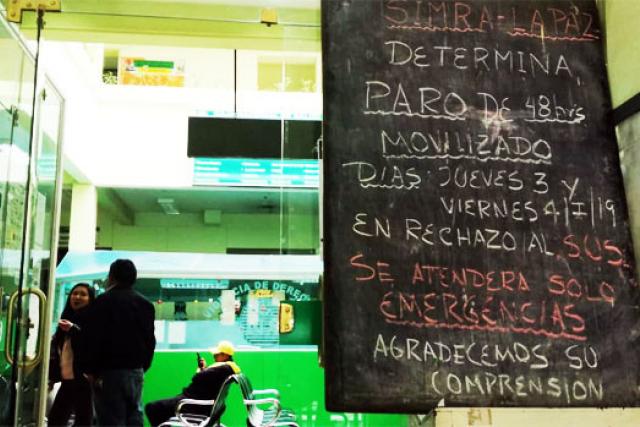 SIMRA-LAPAZ
DETERMINA,
PARO DE 48hrs
MOVILIZADO
DÍAS: JUEVES 3 Y
VIERNES 4/I/19
EN RECHAZO AL SUS
SE ATENDERA SOLO
EMERGENCIAS
AGRADECEMOS SU
COMPRENSIÓN
CIA DE DERE